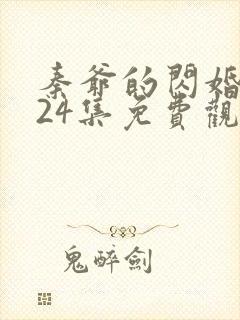 秦爺的閃婚
24集免費觀
鬼醉劍